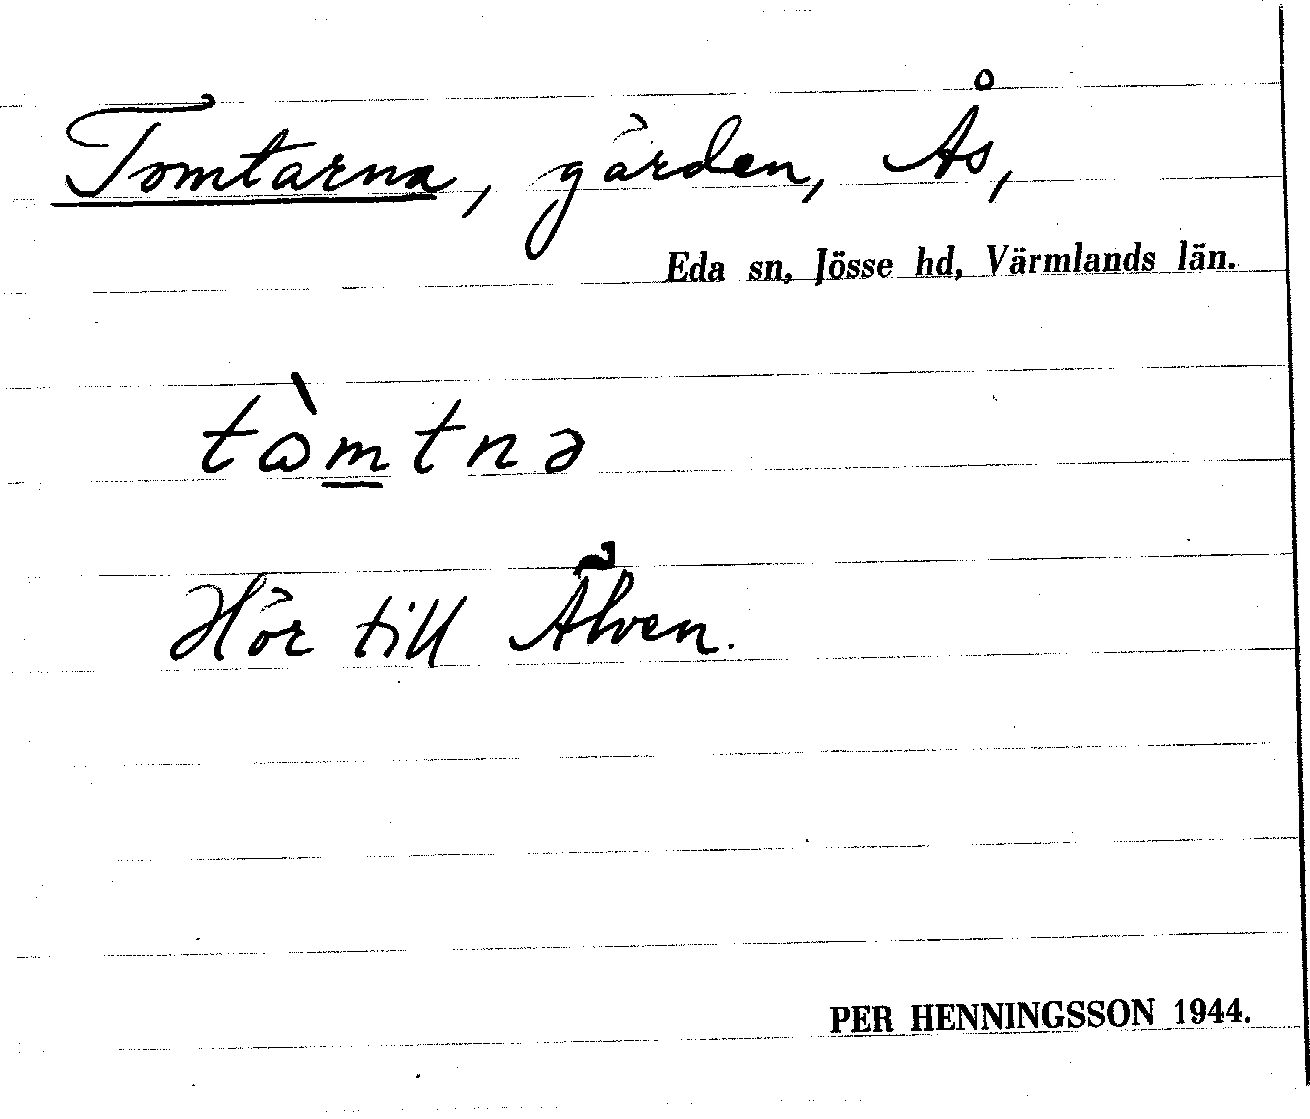 Tomtarna, gärden, Ås,
Eda sn, Jösse hd, Värmlands län.
tὼm̲tnə
Hör till Älven.
PER HENNINGSSON 1944.